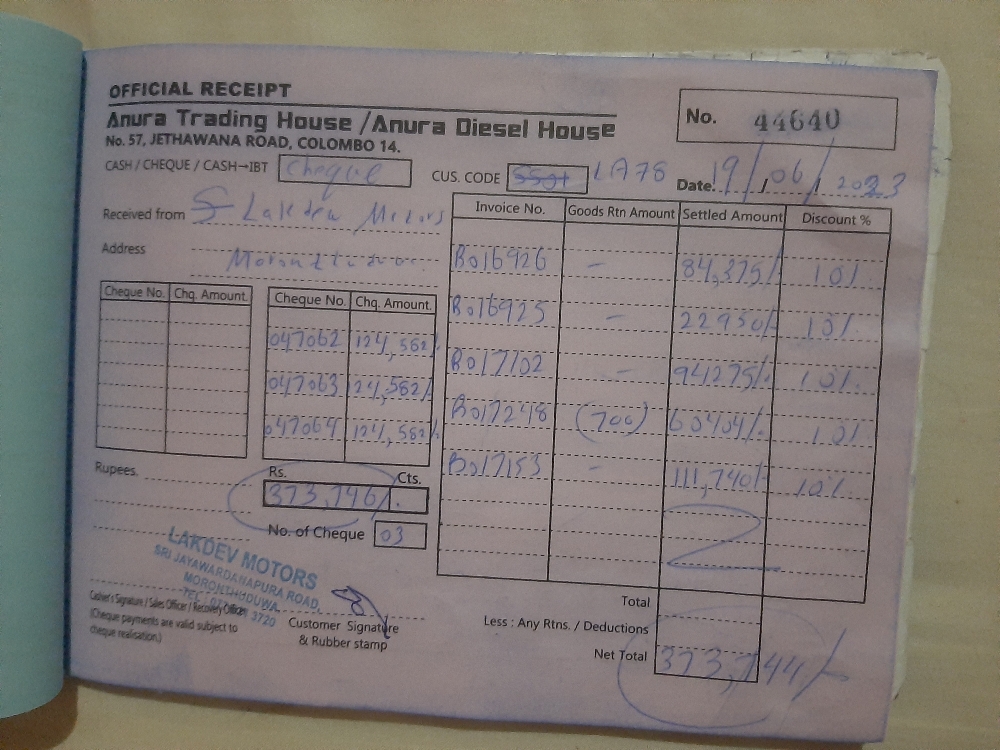 OFFICIAL RECEIPT
Anura Trading House /Anura Diesel House
No. 57, JETHAWANA ROAD, COLOMBO 14.
No. 44640
CASH / CHEQUE / CASH→IBT cheque
CUS. CODE LA78
Date. 19/06/2023
Received from Lakdew Motors
Address
Cheque No. Chq. Amount.
Cheque No. Chq. Amount.
047062 124,582/.
047063 124,582/.
047064 124,582/.
Invoice No. Goods Rtn Amount Settled Amount Discount %
B016926 – 84,375/. 10%
B016925 – 22950/. 10%
B017102 – 94275/. 10%
B017248 (700) 60404/. 10%
B017153 – 111,740/. 10%
Rupees.
Rs. Cts.
373,746/.
No. of Cheque 03
LAKDEV MOTORS
SRI JAYAWARDANAPURA ROAD,
MORONTHUDUWA.
Cashier's Signature / Sales Officer / Recovery Officer
(Cheque payments are valid subject to
cheque realisation.)
Customer Signature
& Rubber stamp
Total
Less : Any Rtns. / Deductions
Net Total 373,744/-